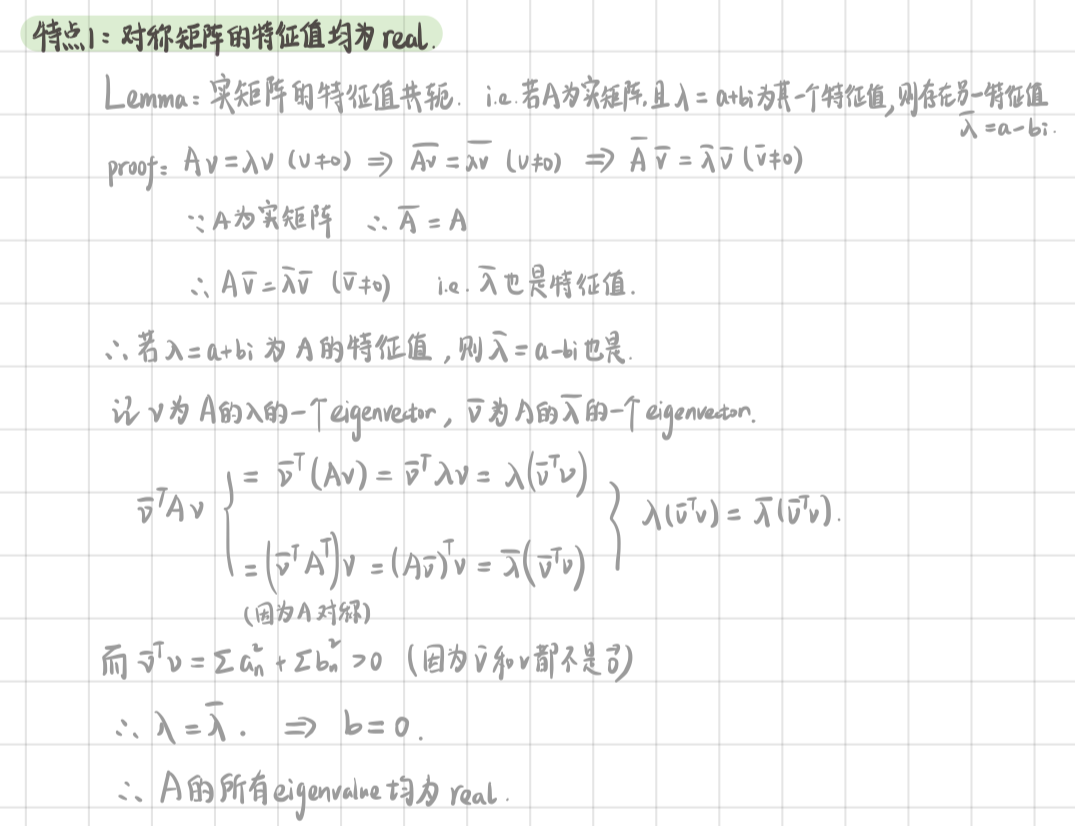 特点1：对称矩阵的特征值均为 real.
Lemma：实矩阵的特征值共轭. i.e. 若A为实矩阵,且 λ = a+bi为其一个特征值,则存在另一特征值
λ̅ = a-bi.
proof: Av = λv (v≠0) ⇒ A̅v̅ = λ̅v̅ (v≠0) ⇒ A̅ v̅ = λ̅ v̅ (v̅≠0)
∵ A为实矩阵 ∴ A̅ = A
∴ Av̅ = λ̅v̅ (v̅≠0) i.e. λ̅ 也是特征值.
∴ 若λ = a+bi 为 A 的特征值, 则 λ̅ = a-bi 也是.
记 v 为 A的λ的一个eigenvector, v̅ 为 A的λ̅的一个 eigenvector.
v̅ᵀAv { = v̅ᵀ(Av) = v̅ᵀλv = λ(v̅ᵀv)
= (v̅ᵀAᵀ)v = (Av̅)ᵀv = λ̅(v̅ᵀv) } λ(v̅ᵀv) = λ̅(v̅ᵀv).
(因为A对称)
而 v̅ᵀv = Σaₙ² + Σbₙ² > 0 (因为 v̅ 和 v 都不是 0⃗)
∴ λ = λ̅. ⇒ b = 0.
∴ A的所有eigenvalue均为 real.